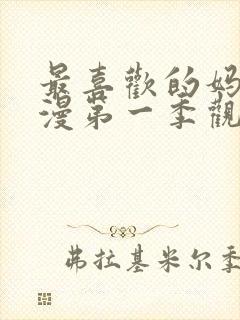 最喜歡的妈
漫第一季觀
弗拉基米尔季